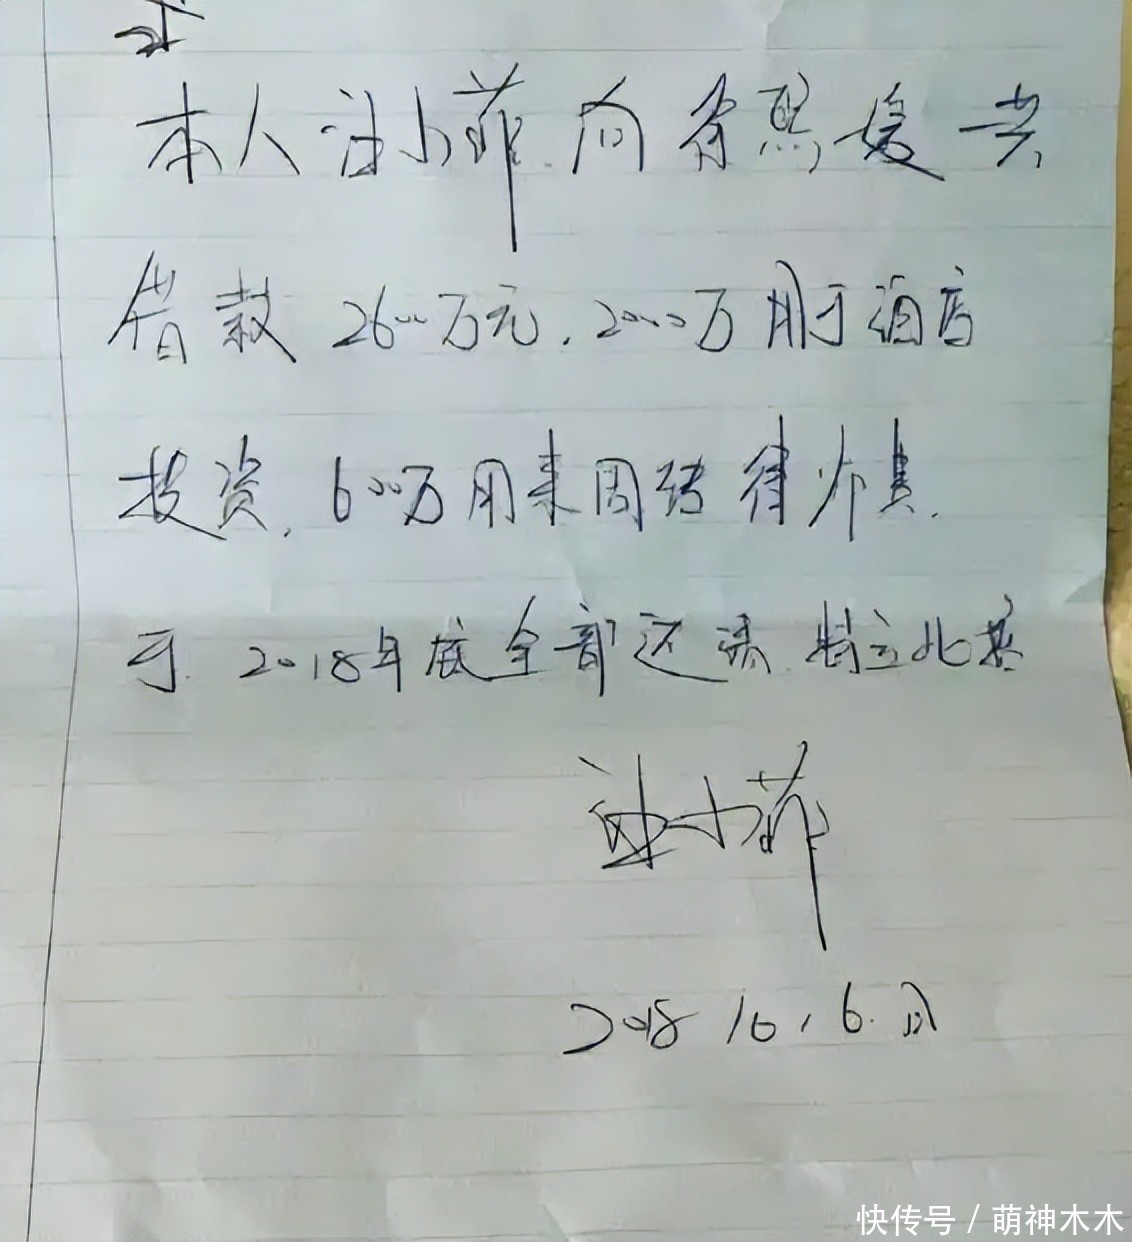 本人汪小菲向徐熙媛共
借款2600万元,2000万用于酒店
投资,600万用来周转律师费.
于2018年底全部还清 特立此条
汪小菲
2018 10.6.日
快传号 / 萌神木木